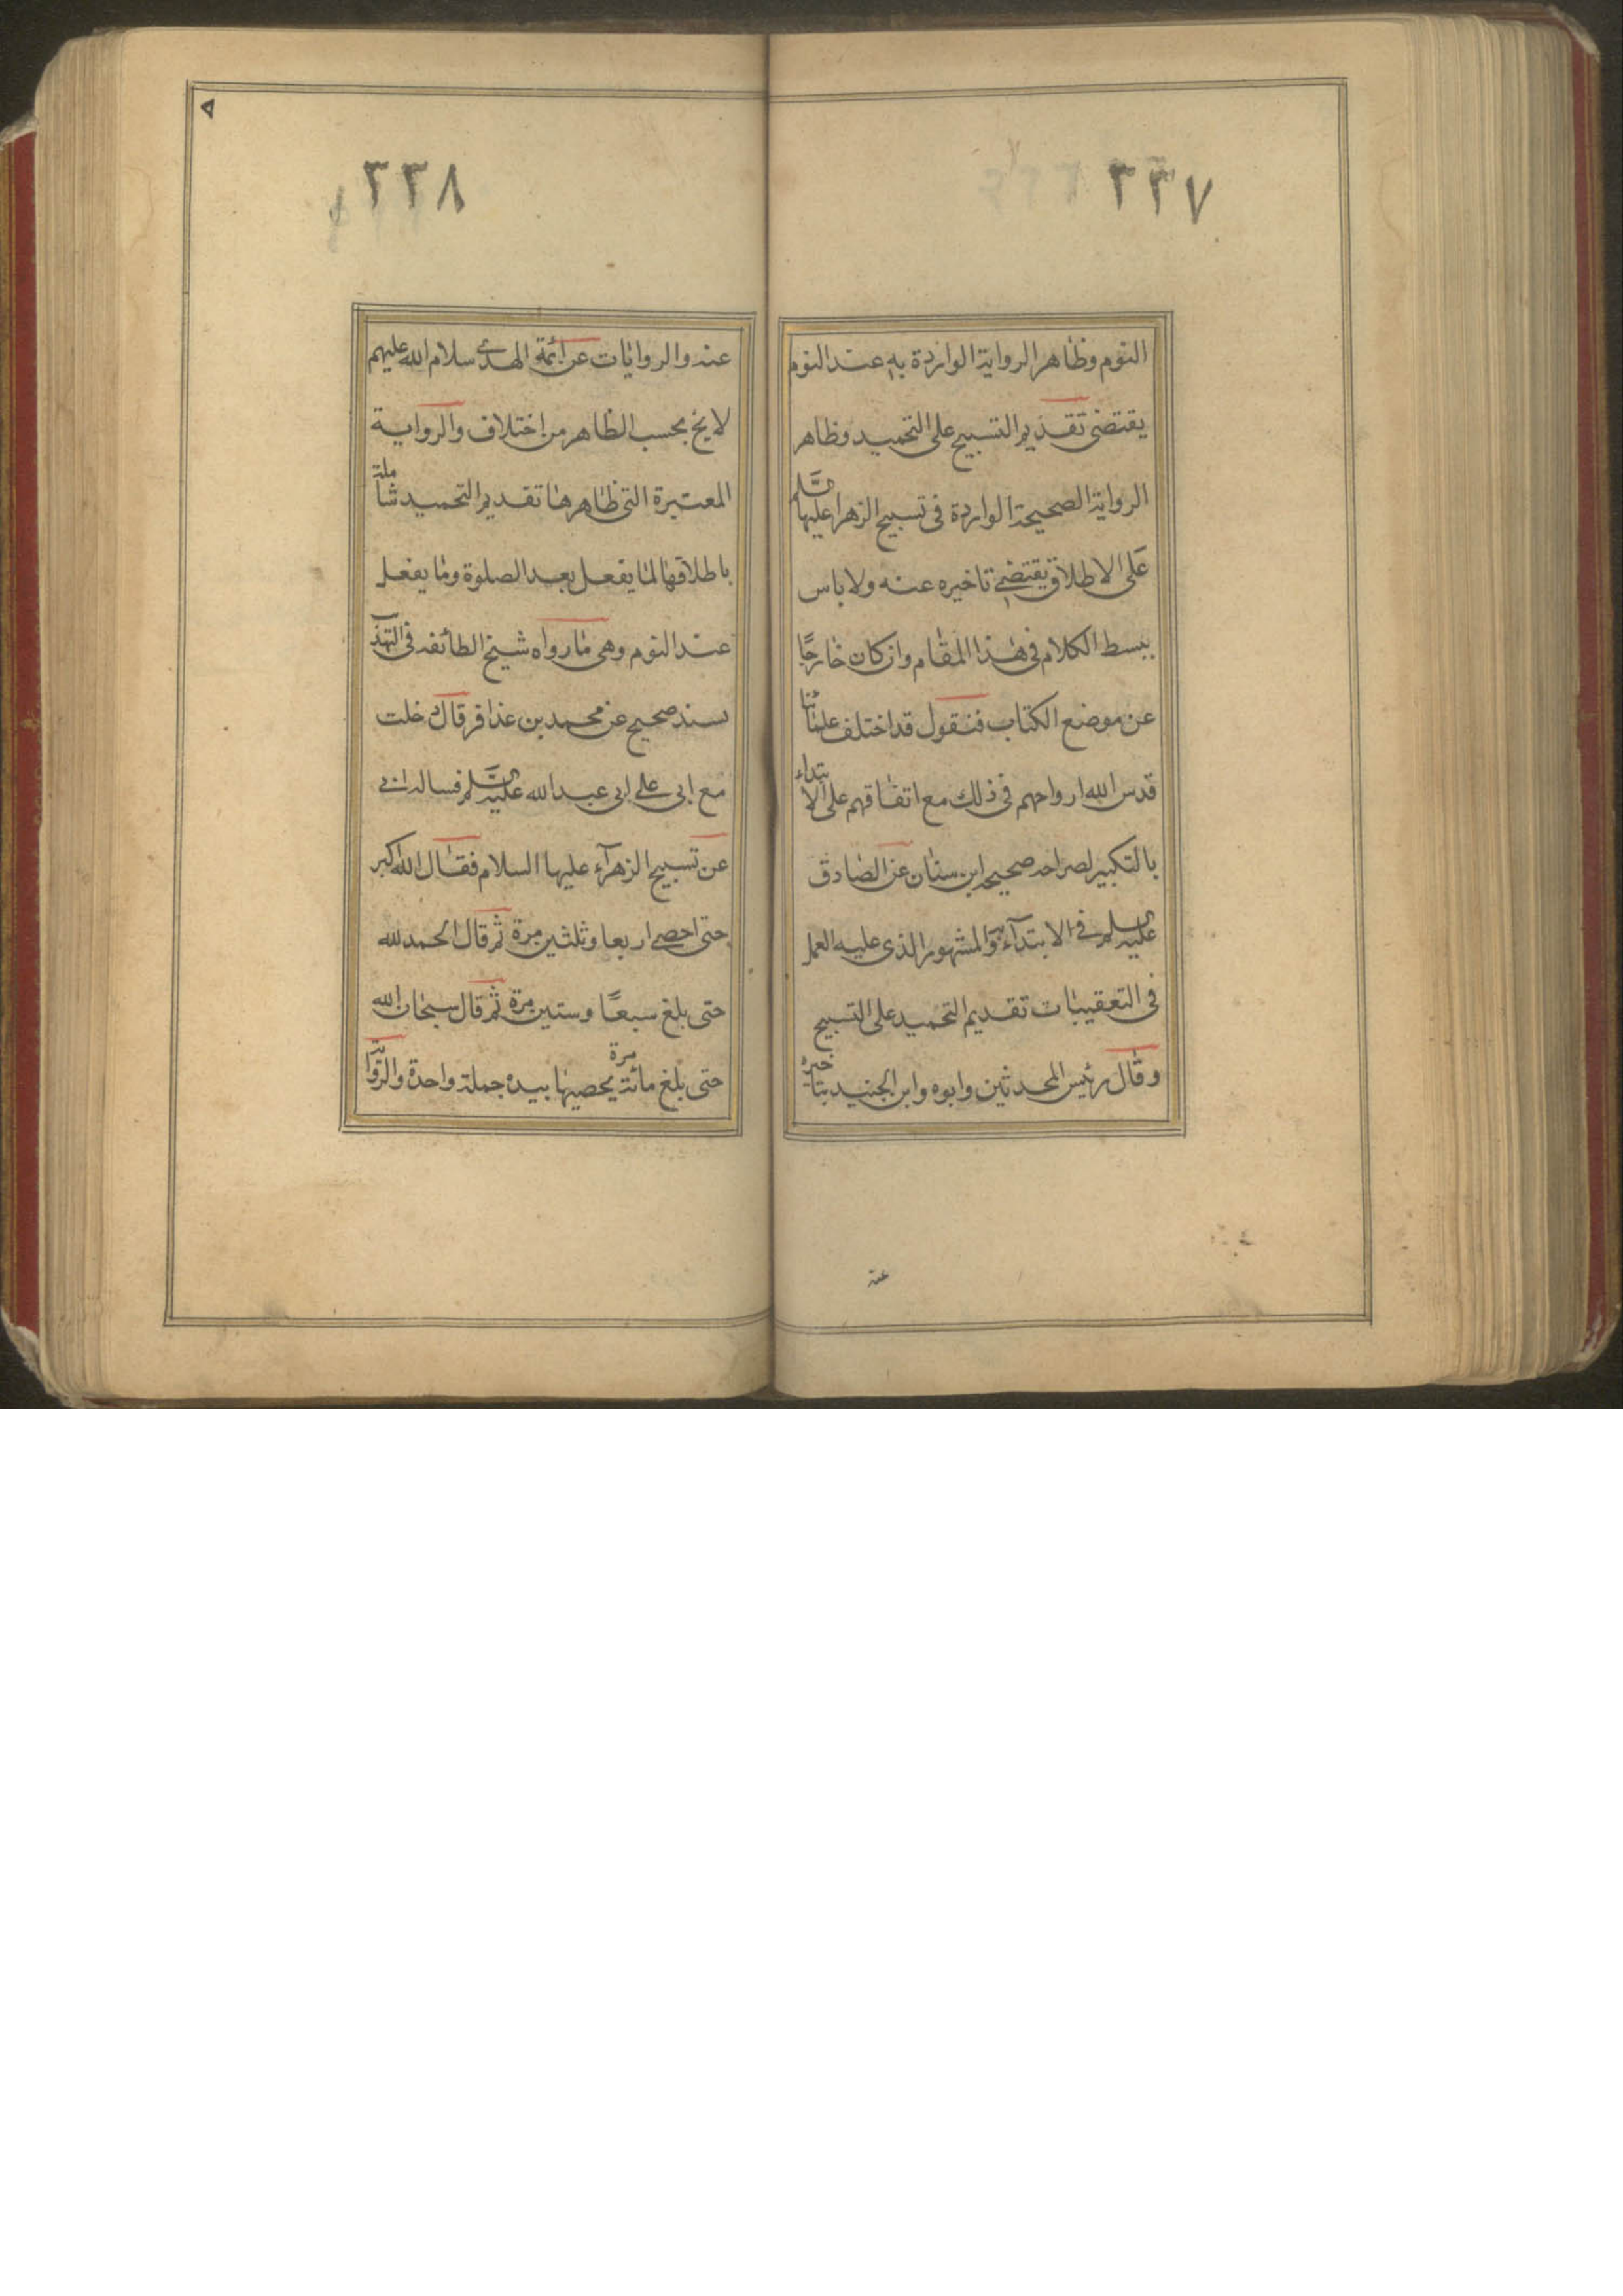 ٣٣٧
النوم وظاهر الرواية الواردة به عند النوم
يقتضى تقديم التسبيح على التحميد وظاهر
الرواية الصحيحة الواردة فى تسبيح الزهرا عليها السلم
على الاطلاق يقتضى تاخيره عنه ولا باس
ببسط الكلام فى هذا المقام وان كان خارجًا
عن موضع الكتاب فنقول قد اختلف علمائنا
قدس الله ارواحهم فى ذلك مع اتفاقهم على الابتداء
بالتكبير لصراحة صحيحة ابن سنان عن الصادق
عليه السلم فى الابتداء به والمشهور الذى عليه العمل
فى التعقيبات تقديم التحميد على التسبيح
وقال رئيس المحدثين وابوه وابن الجنيد بتاخيره
عنه
٣٣٨
عنه والروايات عن ائمة الهدى سلام الله عليهم
لا يخ بحسب الظاهر من اختلاف والرواية
المعتبرة التى ظاهرها تقديم التحميد شاملة
باطلاقها لما يفعل بعد الصلوة وما يفعل
عند النوم وهى ما رواه شيخ الطائفه فى التهذ
بسند صحيح عن محمد بن عذافر قال دخلت
مع ابى على ابى عبد الله عليه السلم فساله ابى
عن تسبيح الزهرآء عليها السلام فقال الله اكبر
حتى احصى اربعا وثلثين مرة ثم قال الحمد لله
حتى بلغ سبعًا وستين مرة ثم قال سبحان الله
حتى بلغ مائة مرة يحصيها بيده جملة واحدة والرواية